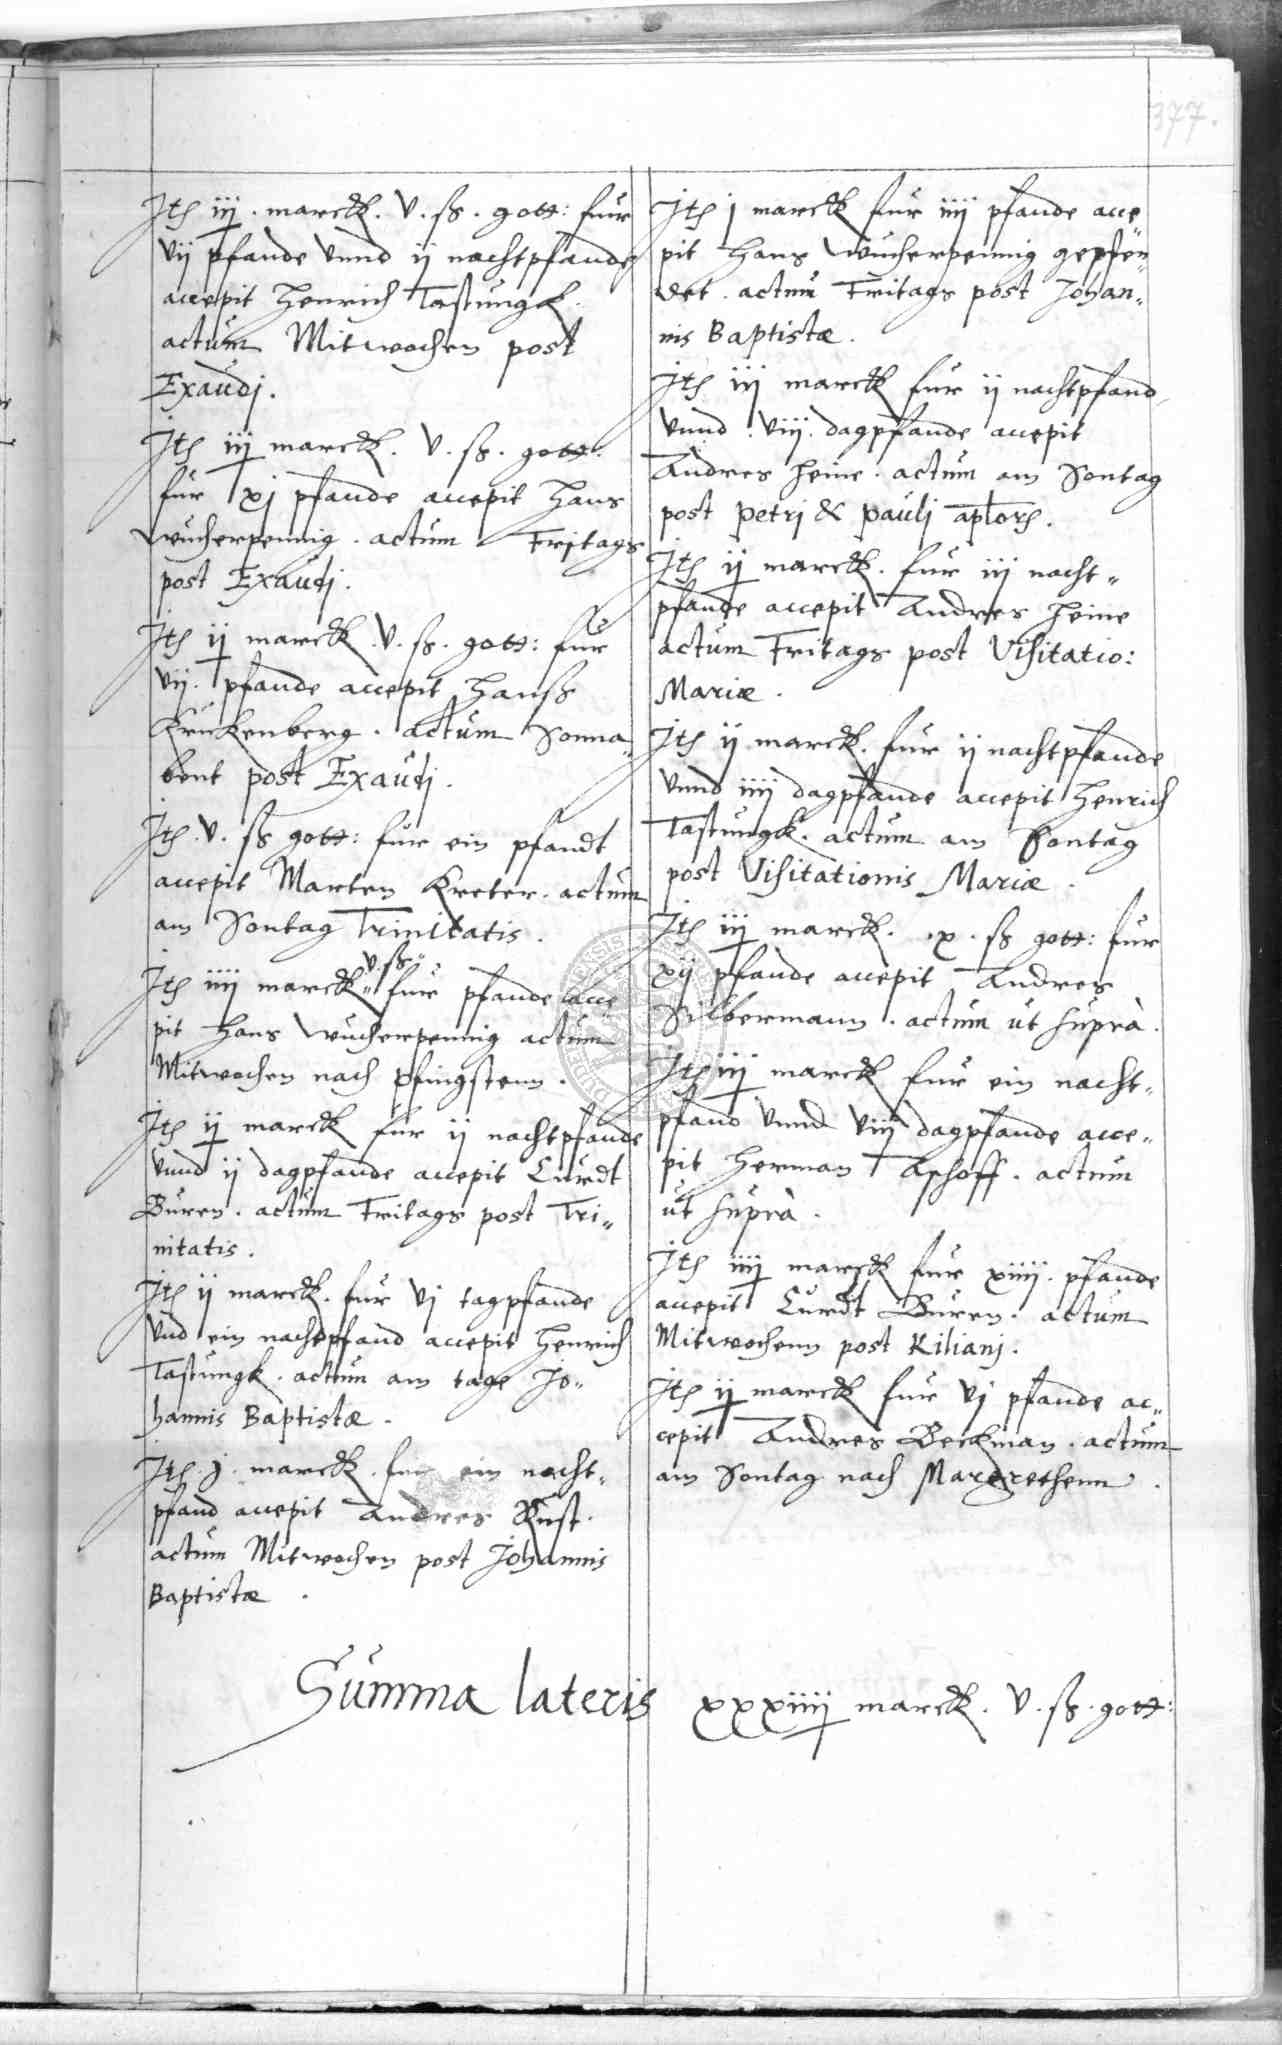 377.
Jtem iij. marck. v. ß. gott: fur
vij pfande vnnd ij nachtpfande
accepit Henrich Tastungk.
actum Mitwochen post
Exaudj.
Jtem iij marck. v. ß. gott:
fur xj pfande accepit Hans
Wucherpennig. actum Fritags
post Exaudj.
Jtem ij marck. v. ß. gott: fur
vij. pfande accepit Hanß
Kruckenberg. actum Sonna„
bent post Exaudj.
Jtem. v. ß gott: fur ein pfandt
accepit Marten Kreter. actum
am Sontag Trinitatis.
v. ß
Jtem iiij marck„ fur pfande acce
pit Hans Wucherpennig actum
Mitwochen nach Pfingstenn.
Jtem ij marck fur ij nachtpfande
vnnd ij dagpfande accepit Curdt
Buren. actum Fritags post Tri„
nitatis.
Jtem ij marck. fur vj tagpfande
vnd ein nachtpfand accepit Henrich
Tastungk. actum am tage Jo„
hannis Baptistæ.
Jtem. j. marck. fur ein nacht„
pfand accepit Andres Rust.
actum Mitwochen post Johannis
Baptistæ.
Jtem j marck fur iiij pfande acce
pit Hans Wucherpennig gepfen„
det. actum Fritags post Johan„
nis Baptistæ.
Jtem iij marck fur ij nachtpfand
vnnd. viij. dagpfande accepit
Andres Heine. actum am Sontag
post Petrj & Paulj aplorum.
Jtem ij marck. fur iij nacht„
pfande accepit Andres Heine
actum Fritags post Visitatio:
Mariæ.
Jtem ij marck. fur ij nachtpfande
vnnd iiij dagpfande accepit Henrich
Tastungk. actum am Sontag
post Visitationis Mariæ.
Jtem iij marck. .x. ß gott: fur
xij pfande accepit Andres
Silbermann. actum ut suprà.
Jtem iij marck fur ein nacht„
pfand vnnd viij dagpfande acce„
pit Herman Ashoff. actum
ut suprà.
Jtem iiij marck fur xiiij. pfande
accepit Curdt Buren. actum
Mitwochenn post Kilianj.
Jtem ij marck fur vj pfande ac„
cepit Andres Beckman. actum
am Sontag nach Margrethenn.
Summa lateris xxxiiij marck. v. ß. gott: